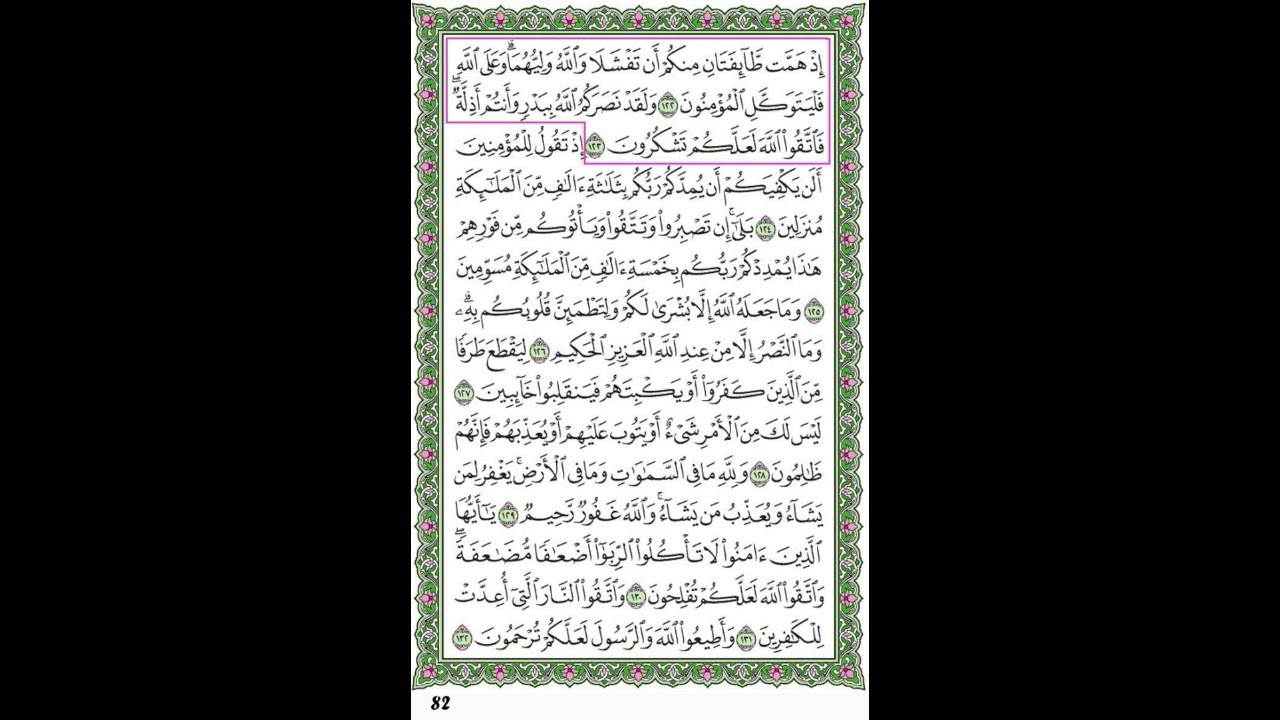 إِذْ هَمَّت طَّآئِفَتَانِ مِنكُمْ أَن تَفْشَلَا وَٱللَّهُ وَلِيُّهُمَاۗ وَعَلَى ٱللَّهِ
فَلْيَتَوَكَّلِ ٱلْمُؤْمِنُونَ ١٢٢ وَلَقَدْ نَصَرَكُمُ ٱللَّهُ بِبَدْرٍ وَأَنتُمْ أَذِلَّةٌۖ
فَٱتَّقُوا۟ ٱللَّهَ لَعَلَّكُمْ تَشْكُرُونَ ١٢٣ إِذْ تَقُولُ لِلْمُؤْمِنِينَ
أَلَن يَكْفِيَكُمْ أَن يُمِدَّكُمْ رَبُّكُم بِثَلَٰثَةِ ءَالَٰفٍ مِّنَ ٱلْمَلَٰٓئِكَةِ
مُنزَلِينَ ١٢٤ بَلَىٰٓۚ إِن تَصْبِرُوا۟ وَتَتَّقُوا۟ وَيَأْتُوكُم مِّن فَوْرِهِمْ
هَٰذَا يُمْدِدْكُمْ رَبُّكُم بِخَمْسَةِ ءَالَٰفٍ مِّنَ ٱلْمَلَٰٓئِكَةِ مُسَوِّمِينَ
١٢٥ وَمَا جَعَلَهُ ٱللَّهُ إِلَّا بُشْرَىٰ لَكُمْ وَلِتَطْمَئِنَّ قُلُوبُكُم بِهِۦۗ
وَمَا ٱلنَّصْرُ إِلَّا مِنْ عِندِ ٱللَّهِ ٱلْعَزِيزِ ٱلْحَكِيمِ ١٢٦ لِيَقْطَعَ طَرَفًا
مِّنَ ٱلَّذِينَ كَفَرُوٓا۟ أَوْ يَكْبِتَهُمْ فَيَنقَلِبُوا۟ خَآئِبِينَ ١٢٧
لَيْسَ لَكَ مِنَ ٱلْأَمْرِ شَىْءٌ أَوْ يَتُوبَ عَلَيْهِمْ أَوْ يُعَذِّبَهُمْ فَإِنَّهُمْ
ظَٰلِمُونَ ١٢٨ وَلِلَّهِ مَا فِى ٱلسَّمَٰوَٰتِ وَمَا فِى ٱلْأَرْضِۚ يَغْفِرُ لِمَن
يَشَآءُ وَيُعَذِّبُ مَن يَشَآءُۚ وَٱللَّهُ غَفُورٌ رَّحِيمٌ ١٢٩ يَٰٓأَيُّهَا
ٱلَّذِينَ ءَامَنُوا۟ لَا تَأْكُلُوا۟ ٱلرِّبَوٰٓا۟ أَضْعَٰفًا مُّضَٰعَفَةًۖ
وَٱتَّقُوا۟ ٱللَّهَ لَعَلَّكُمْ تُفْلِحُونَ ١٣٠ وَٱتَّقُوا۟ ٱلنَّارَ ٱلَّتِىٓ أُعِدَّتْ
لِلْكَٰفِرِينَ ١٣١ وَأَطِيعُوا۟ ٱللَّهَ وَٱلرَّسُولَ لَعَلَّكُمْ تُرْحَمُونَ ١٣٢
82